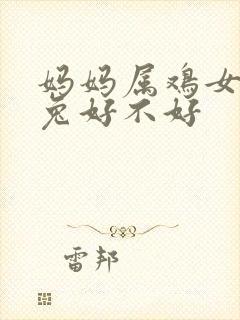 妈妈属鸡女
兔好不好
雷邦